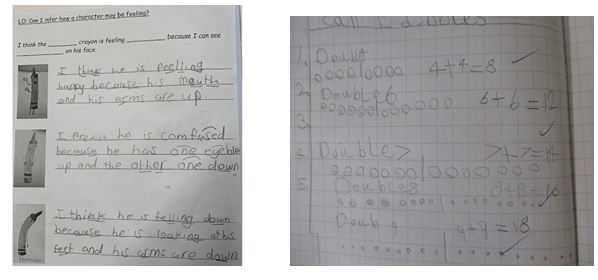 LO: Can I infer how a character may be feeling?
I think the ________ crayon is feeling ________ because I can see
________ on his face.
I think he is feelling
happy because his mouth
and his arms are up.
I Predict he is comfused
because he has one eyeble
up and the other one down
I think he is felling down
because he is looking at his
feet and his arms are down
call 1 doubles
1, Doub4
4+4=8
2, Double 6
6+6=12
3
4, Double 7
7+7=14
5. Double 8
8+8=16
Doub 9
9+9=18